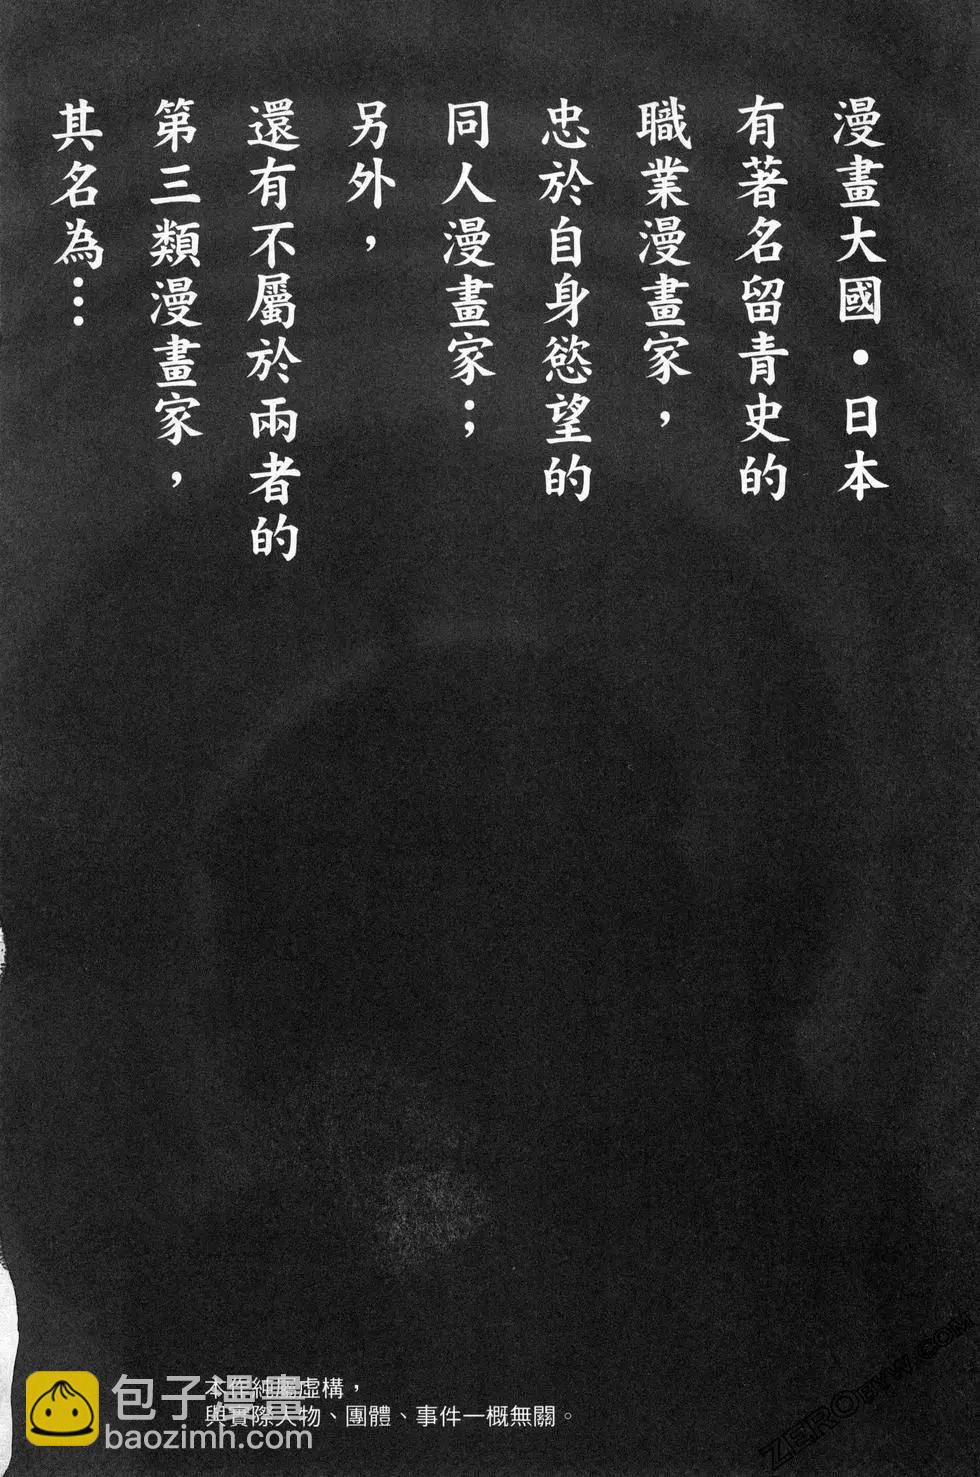 漫畫大國・日本
有著名留青史的
職業漫畫家，
忠於自身慾望的
同人漫畫家；
另外，
還有不屬於兩者的
第三類漫畫家，
其名為…
本作純屬虛構，
與實際人物、團體、事件一概無關。
包子漫畫
baozimh.com
ZEROBYW.COM